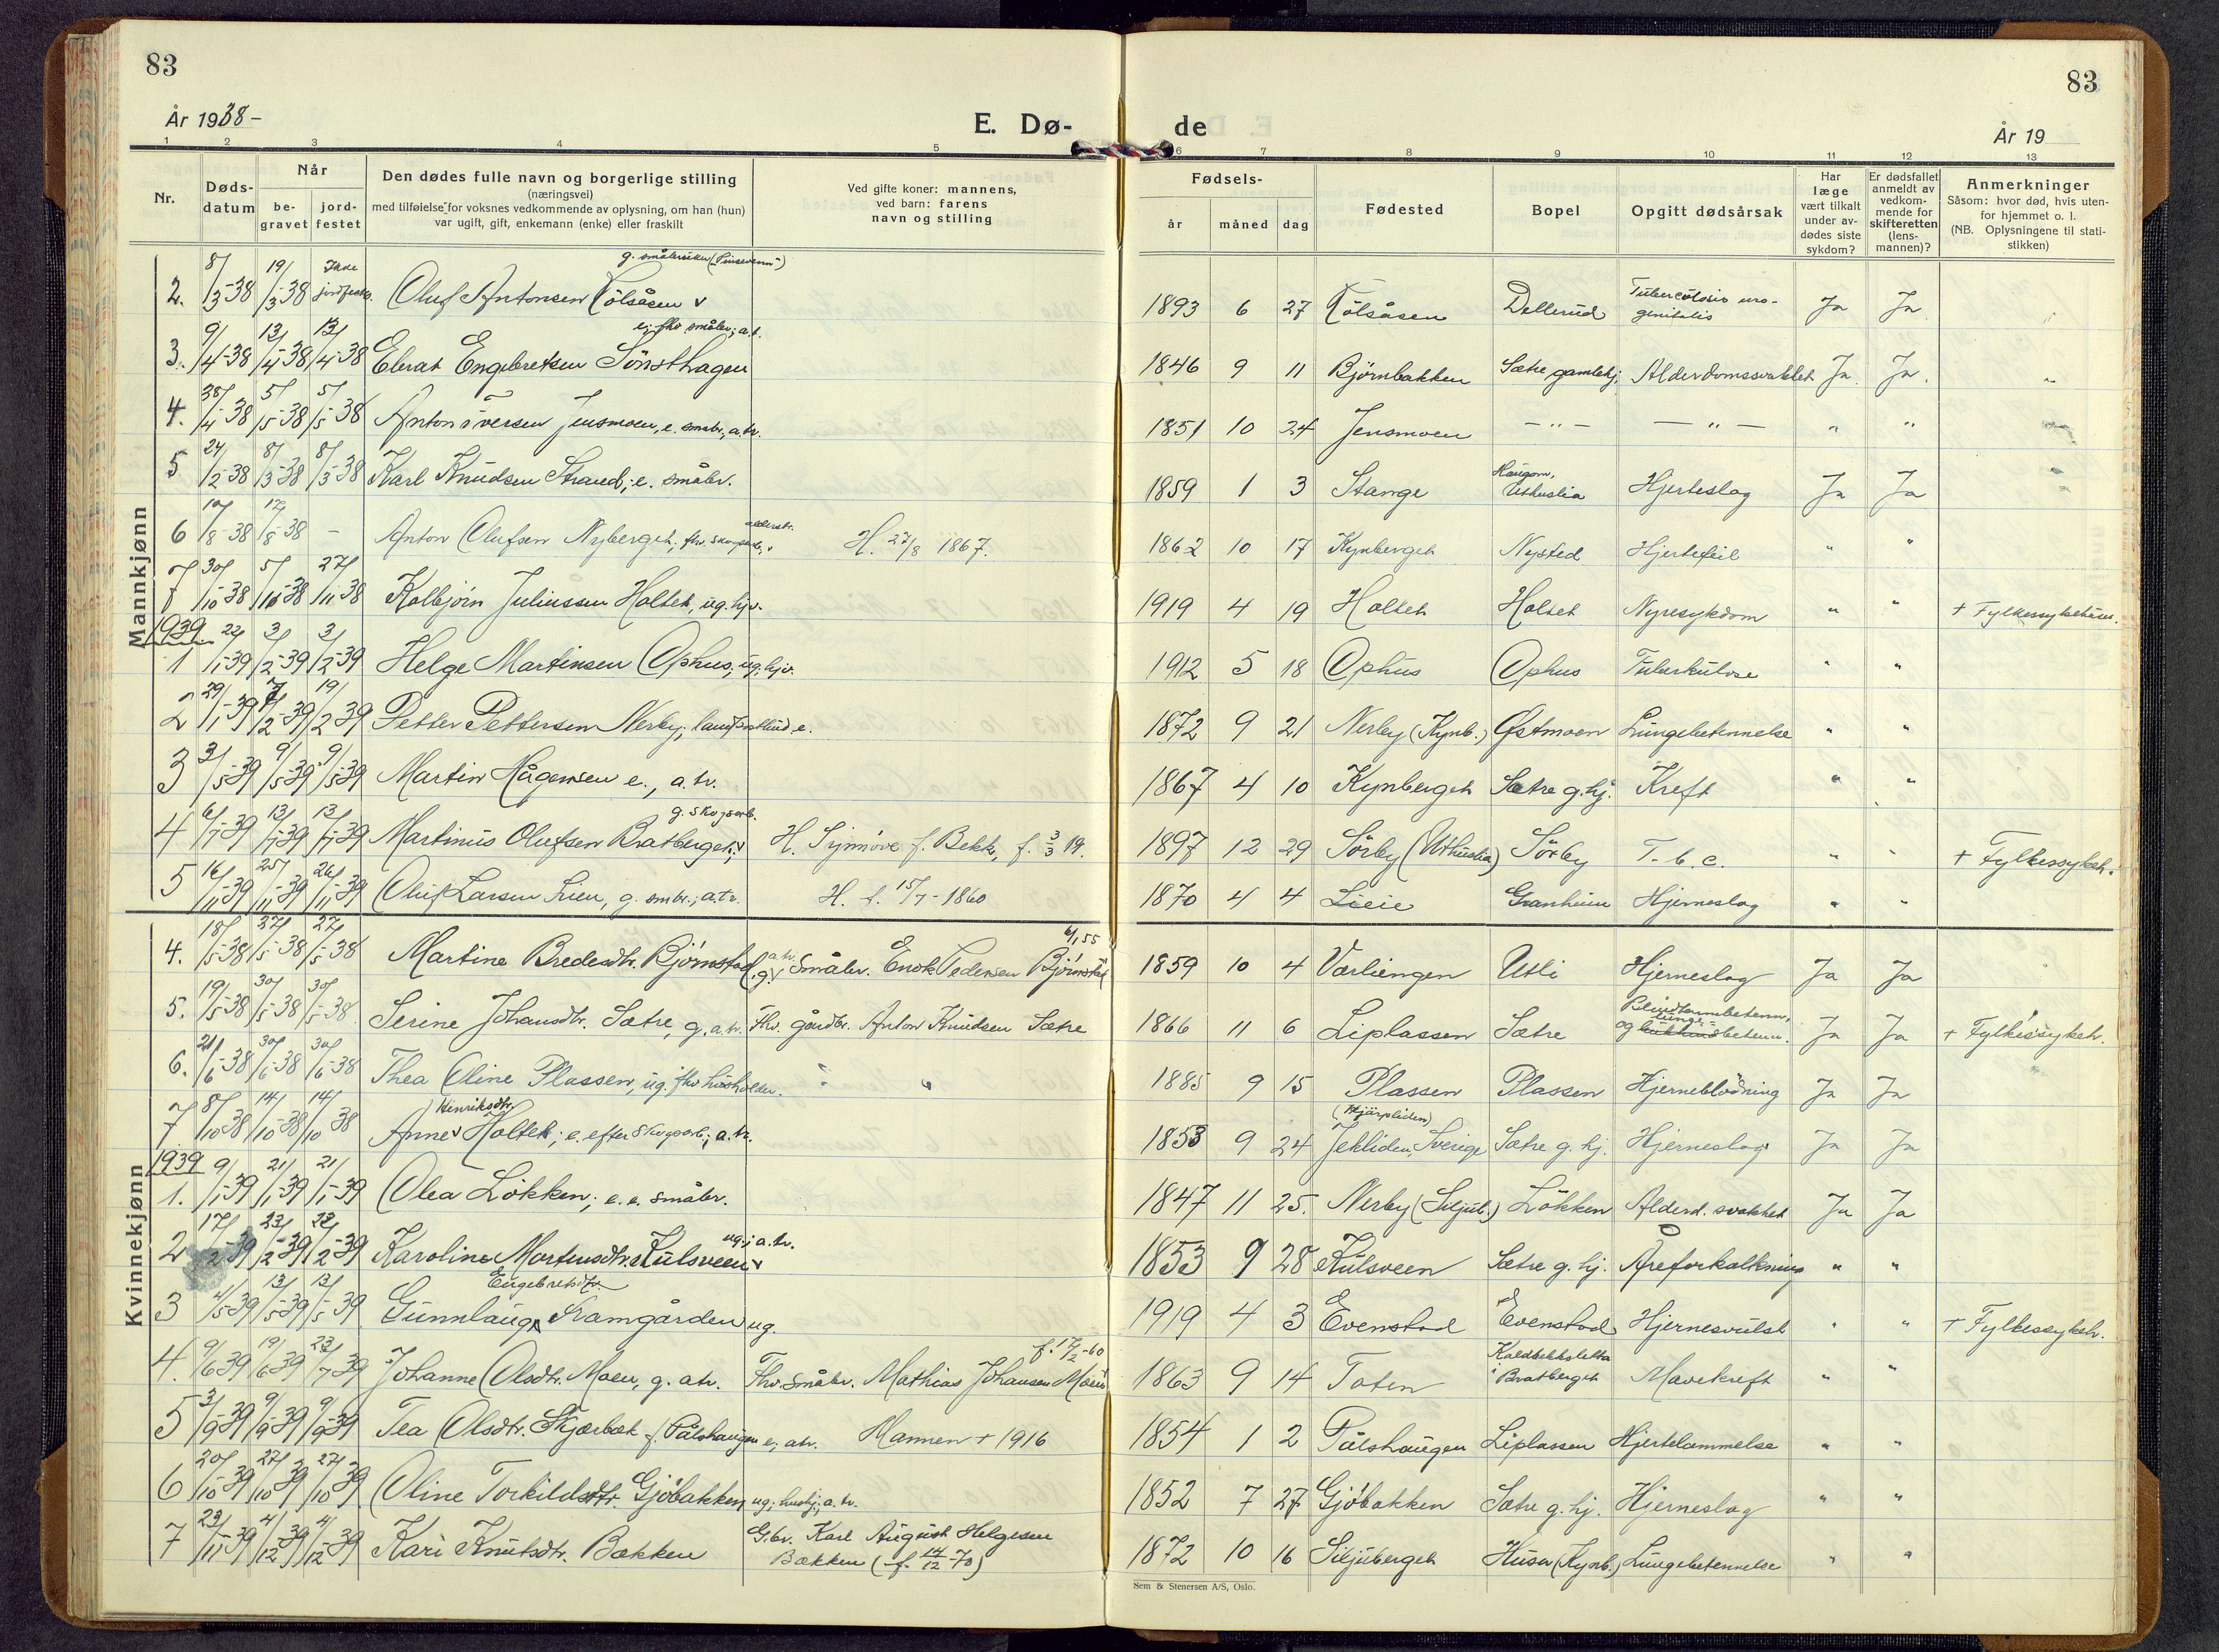 83
83
År 1938-
E. Dø-
de
År 19
1 2 3 4 5 6 7 8 9 10 11 12 13
Nr.
Døds-
datum
Når
be-
gravet
jord-
festet
Den dødes fulle navn og borgerlige stilling
(næringsvei)
med tilføielse for voksnes vedkommende av oplysning, om han (hun)
var ugift, gift, enkemann (enke) eller fraskilt
Ved gifte koner: mannens,
ved barn: farens
navn og stilling
Fødsels-
år måned dag
Fødested
Bopel
Opgitt dødsårsak
Har
læge
vært tilkalt
under av-
dødes siste
sykdom?
Er dødsfallet
anmeldt av
vedkom-
mende for
skifteretten
(lens-
mannen)?
Anmerkninger
Såsom: hvor død, hvis uten-
for hjemmet o. l.
(NB. Oplysningene til stati-
stikken)
Mannkjønn
2. 8/3-38 19/3-38 Ikke jordfest. Oluf Antonsen Kølsåsen 1893 6 27 Kølsåsen Dellerud Tuberculosis uro-genitalis Ja Ja
3. 9/4-38 13/4-38 13/4-38 Engebretsen Sönsthagen e; fhv småbr; a.t. 1846 9 11 Björnbakken Sætre gamlehj. Alderdomssvakhet Ja Ja
4. 5/5-38 5/5-38 Anton Iversen Jensmoen, e. småbr., a.tr. 1851 10 24 Jensmoen - " - - " - " "
5 24/2-38 8/3-38 8/3-38 Karl Knudsen Strand, e. småbr. 1859 1 3 Stange Haugom, Uthuslia Hjerteslag Ja Ja
6 10/8-38 17/8-38 - Anton Olufsen Nyberget; fhv. skogsarb., alderstr. H. 27/8 1867. 1862 10 17 Kynberget Nysted Hjertefeil " "
7 30/10-38 5/11-38 27/11-38 Kolbjörn Juliussen Holtet, ug. hjv. 1919 4 19 Holtet Holtet Nyresykdom " " + Fylkessykehuset.
1939
1 22/1-39 3/2-39 3/2-39 Helge Martinsen Ophus, ug. hjv. 1912 5 18 Ophus Ophus Tuberkulose " "
2 29/1-39 7/2-39 19/2-39 Petter Pettersen Nerby, e. 1872 9 21 Nerby (Kynb.) Østmoen Lungebetennelse " "
3 3/5-39 9/5-39 9/5-39 Martin Hågensen e., a.tr. 1867 4 10 Kynberget Sætre g.hj. Kreft " "
4 6/7-39 13/7-39 13/7-39 Martinus Olufsen Bratberget; g. skogsarb. H. Synnöve f. Bekk, f. 3/3 19. 1897 12 29 Sörby (Uthuslia) Sörby T.b.c. " " + Fylkessykeh.
5 16/11-39 25/11-39 26/11-39 Oluf Larsen Lien, g. småbr., a.tr. H. f. 15/7-1860 1870 4 4 Lieie Granheim Hjerneslag " "
Kvinnekjønn
4. 18/5-38 27/5-38 27/5-38 Martine Bredesdtr. Björnstad, g. a.tr. Småbr. Enok Pedersen Björnstad 6/1 55 1859 10 4 Værliengen Utli Hjerneslag Ja Ja
5. 19/5-38 30/5-38 30/5-38 Serine Johansdtr. Sætre, g. a.tr. Fhv. gårdbr. Anton Knudsen Sætre 1866 11 6 Liplassen Sætre Blindtarmbetenn. og lunge-betenn. Ja Ja + Fylkessykeh.
6. 21/6-38 30/6-38 30/6-38 Thea Oline Plassen, ug. fhv husholder. " " 1885 9 15 Plassen Plassen Hjerneblödning Ja Ja
7 8/10-38 14/10-38 14/10-38 Anne Henriksdtr. Holtet; e. efter skogsarb; a.tr. 1853 9 24 (Hjärpliden) Jekliden, Sverige Sætre g.hj. Hjerneslag Ja Ja
1939
1. 9/1-39 21/1-39 21/1-39 Olea Lökken; e. e. småbr. 1847 11 25. Nerby (Siljub.) Lökken Alderd. svakhet Ja Ja
2 17/2-39 23/2-39 23/2-39 Karoline Mortensdtr. Kulsveen ug.; a.tr. 1853 9 28 Kulsveen Sætre g.hj. Åreforkalkning " "
3 4/5-39 13/5-39 13/5-39 Gunnlaug Engebretsdtr. Framgården ug. 1919 4 3 Evenstad Evenstad Hjernesvulst " " + Fylkessykeh.
4. 9/6-39 19/6-39 23/7-39 Johanne Olsdtr. Moen, g. atr. Fhv. Småbr. Mathias Johansen Moen f. 17/2-60 1863 9 14 Toten Kaldbekksletta i Bratberget Mavekreft " "
5 3/9-39 9/9-39 9/9-39 Tea Olsdtr. Skjærbæk f. Pålshaugen e; atr. Mannen + 1916 1854 1 2 Pålshaugen Liplassen Hjertelammelse " "
6 20/10-39 27/10-39 27/10-39 Oline Torkildsdtr. Gjöbakken, ug; hushj; a.tr. 1852 7 27 Gjöbakken Sætre g.hj. Hjerneslag " "
7 23/11-39 4/12-39 4/12-39 Kari Knutsdtr. Bakken G.br. Karl August Helgesen Bakken (f. 14/12-70) 1872 10 16 Siljuberget Huser (Kynb.) Lungebetennelse " "
Sem & Stenersen A/S, Oslo.